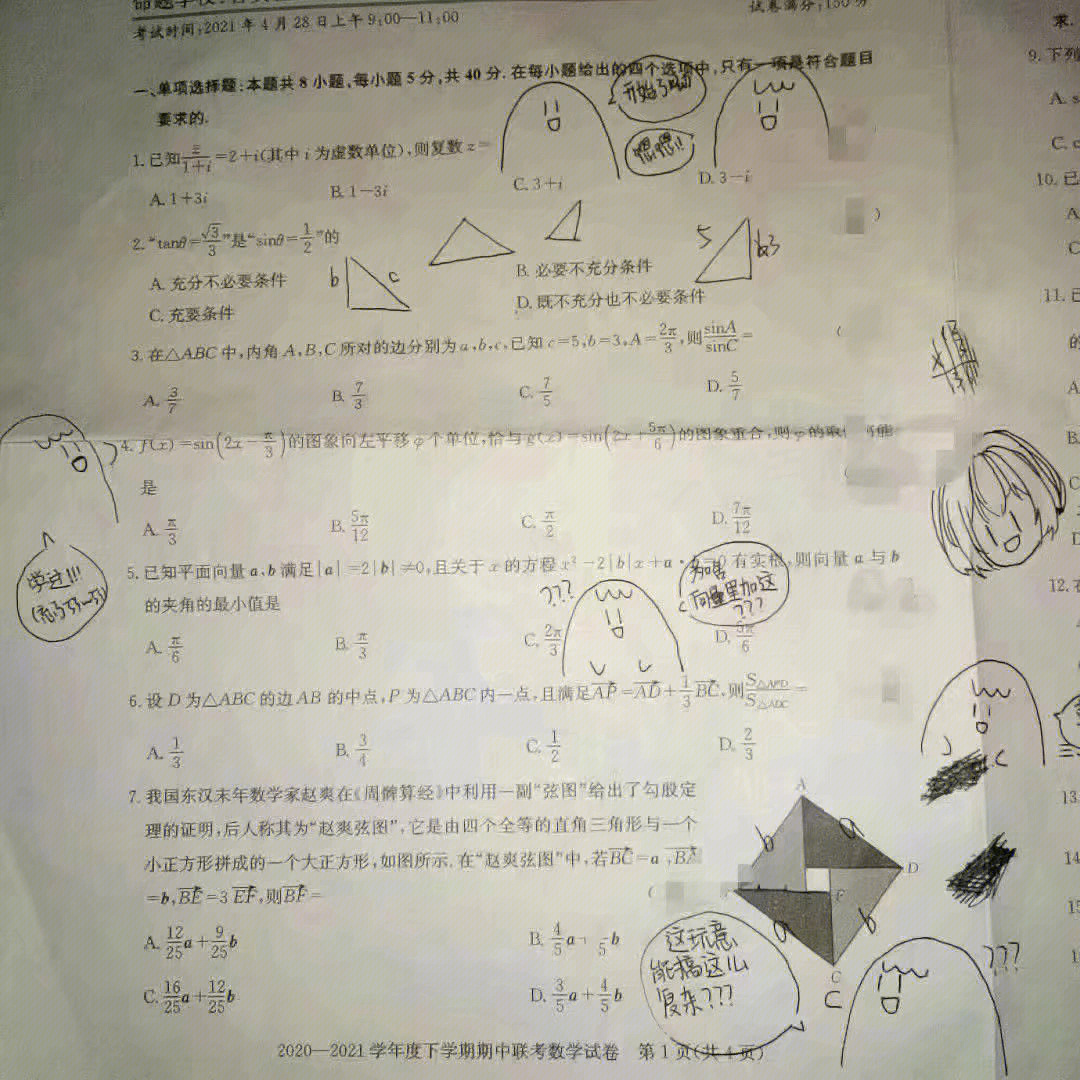 考试时间:2021年4月28日上午9:00—11:00
试卷满分:150分
一、单项选择题:本题共8小题,每小题5分,共40分.在每小题给出的四个选项中,只有一项是符合题目
要求的.
开始了吗
嘿嘿!!
1.已知\frac{z}{1+i}=2+i(其中i为虚数单位),则复数z=
A.1+3i B.1-3i C.3+i D.3-i
2."tanθ=\frac{\sqrt{3}}{3}"是"sinθ=\frac{1}{2}"的
A.充分不必要条件 B.必要不充分条件
C.充要条件 D.既不充分也不必要条件
b c
5
3.在△ABC中,内角A,B,C所对的边分别为a,b,c,已知c=5,b=3,A=\frac{2π}{3},则\frac{sinA}{sinC}=
A.\frac{3}{7} B.\frac{7}{3} C.\frac{7}{5} D.\frac{5}{7}
4.f(x)=sin(2x-\frac{π}{3})的图象向左平移φ个单位,恰与g(x)=sin(2x+\frac{5π}{6})的图象重合,则φ的取 能
是
A.\frac{π}{3} B.\frac{5π}{12} C.\frac{π}{2} D.\frac{7π}{12}
学过!!!
5.已知平面向量a,b满足|a|=2|b|≠0,且关于x的方程x²-2|b|x+a· =0有实根,则向量a与b
的夹角的最小值是
???
向量里加这
???
A.\frac{π}{6} B.\frac{π}{3} C.\frac{2π}{3} D.\frac{5π}{6}
6.设D为△ABC的边AB的中点,P为△ABC内一点,且满足\overrightarrow{AP}=\overrightarrow{AD}+\frac{1}{3}\overrightarrow{BC},则\frac{S_{△APD}}{S_{△ADC}}=
A.\frac{1}{3} B.\frac{3}{4} C.\frac{1}{2} D.\frac{2}{3}
7.我国东汉末年数学家赵爽在《周髀算经》中利用一副"弦图"给出了勾股定
理的证明,后人称其为"赵爽弦图",它是由四个全等的直角三角形与一个
小正方形拼成的一个大正方形,如图所示.在"赵爽弦图"中,若\overrightarrow{BC}=a,\overrightarrow{BA}
=b,\overrightarrow{BE}=3\overrightarrow{EF},则\overrightarrow{BF}=
A.\frac{12}{25}a+\frac{9}{25}b B.\frac{4}{5}a+ 5 b
C.\frac{16}{25}a+\frac{12}{25}b D.\frac{3}{5}a+\frac{4}{5}b
A
b a
D
F
a b
C
C
这玩意
能搞这么
复杂???
???
2020—2021学年度下学期期中联考数学试卷 第1页(共4页)
求.
9.下列
A.
C.
10.已
A
C
11.已
的
A
B.
C
D
12.
13.
14
15